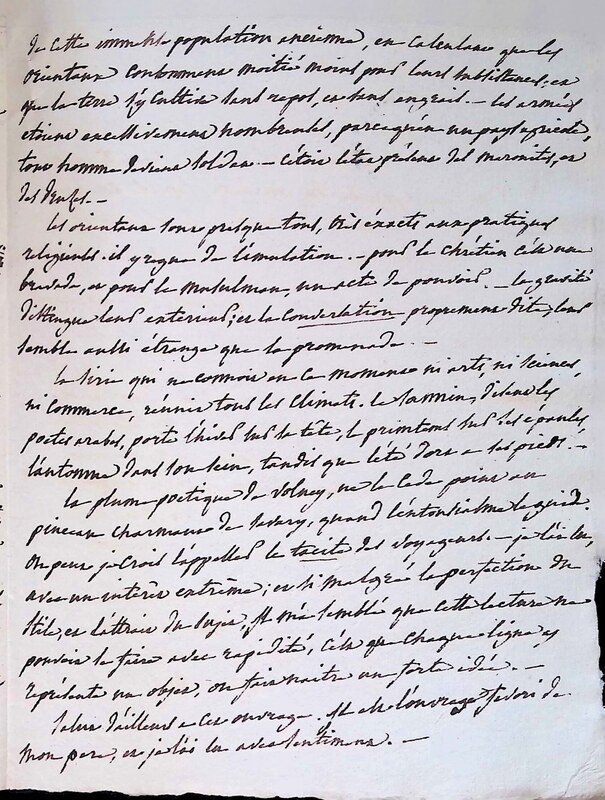 de cette immense population ancienne, en calculant que les
orientaux consomment moitié moins pour leurs subsistances, et
que la terre s'y cultive sans repos, et sans engrais. — les armées
etoient excessivement nombreuses, parcequ'en un pays agricole,
tout homme devient soldat. — c'étoit l'état présent des maronites, et
des druses. —
les orientaux sont presque tous, très éxacts aux pratiques
religieuses. il y regne de l'émulation. — pour le chrétien c'est une
bravade, et pour le musulman, un acte de pouvoir. — la gravité
distingue leurs exterieurs; et la conversation proprement dite, leur
semble aussi étrange que la promenade. —
la sirie qui ne connoit en ce moment ni arts, ni sciences,
ni commerce, réunit tous les climats. le sannin, disent les
poetes arabes, porte l'hiver sur la tête, le printems sur ses épaules,
l'automne dans son sein, tandis que l'été dort a ses pieds. —
la plume poetique de volney, ne le cede point au
pinceau charmant de savary, quand l'entousiasme le guide.
on peut je crois l'appeller le tacite des voyageurs. — je l'ai lu,
avec un interêt extrême; et si malgré la perfection du
stile, et l'attrait du sujet, il m'a semblé que cette lecture ne
pouvoit se faire avec rapidité, c'est que chaque ligne y
représente un objet, ou fait naitre une forte idée. —
salut d'ailleurs a cet ouvrage. il est l'ouvrage favori de
mon pere, et je l'ai lu avec sentiment. —